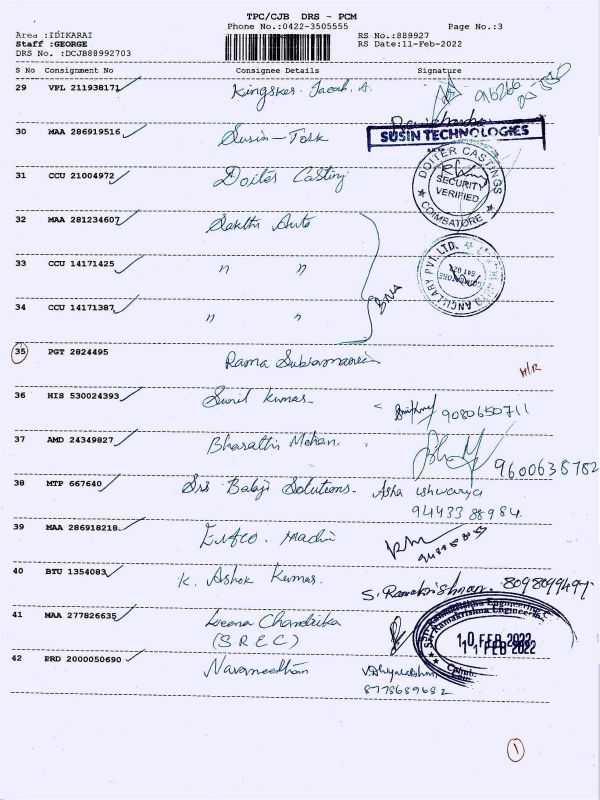 TPC/CJB DRS - PCM
Phone No.:0422-3505555 Page No.:3
Area :IDIKARAI RS No.:889927
Staff :GEORGE RS Date:11-Feb-2022
DRS No. :DCJB88992703
S No Consignment No Consignee Details Signature
29 VPL 211938171 Kingsker Jacob. A.
30 MAA 286919516 Susin - Tork
SUSIN TECHNOLOGIES
31 CCU 21004972 Doiter Casting
DOITER CASTINGS SECURITY VERIFIED COIMBATORE
32 MAA 281234607 Sakthi Auto
33 CCU 14171425 " "
ANCILLARY PVT. LTD.
34 CCU 14171387 " "
35 PGT 2824495 Rama Subramaniein
H/R
36 HIS 530024393 Sunil Kumar 9080650711
37 AMD 24349827 Bharathi Mohan. 9600638782
38 MTP 667640 Sri Balaji Solutions. Asha ishwarya
94433 88984.
39 MAA 286918218
40 BTU 1354083 K. Ashok Kumar. S. Ramakrishnan. 8098099497
41 MAA 277826635 Leena Chandrika
(S.R.E.C)
Sri Ramakrishna Engineering
10 FEB 2022
11 FEB 2022
42 PRD 2000050690 Navaneedhan
8778689682
1